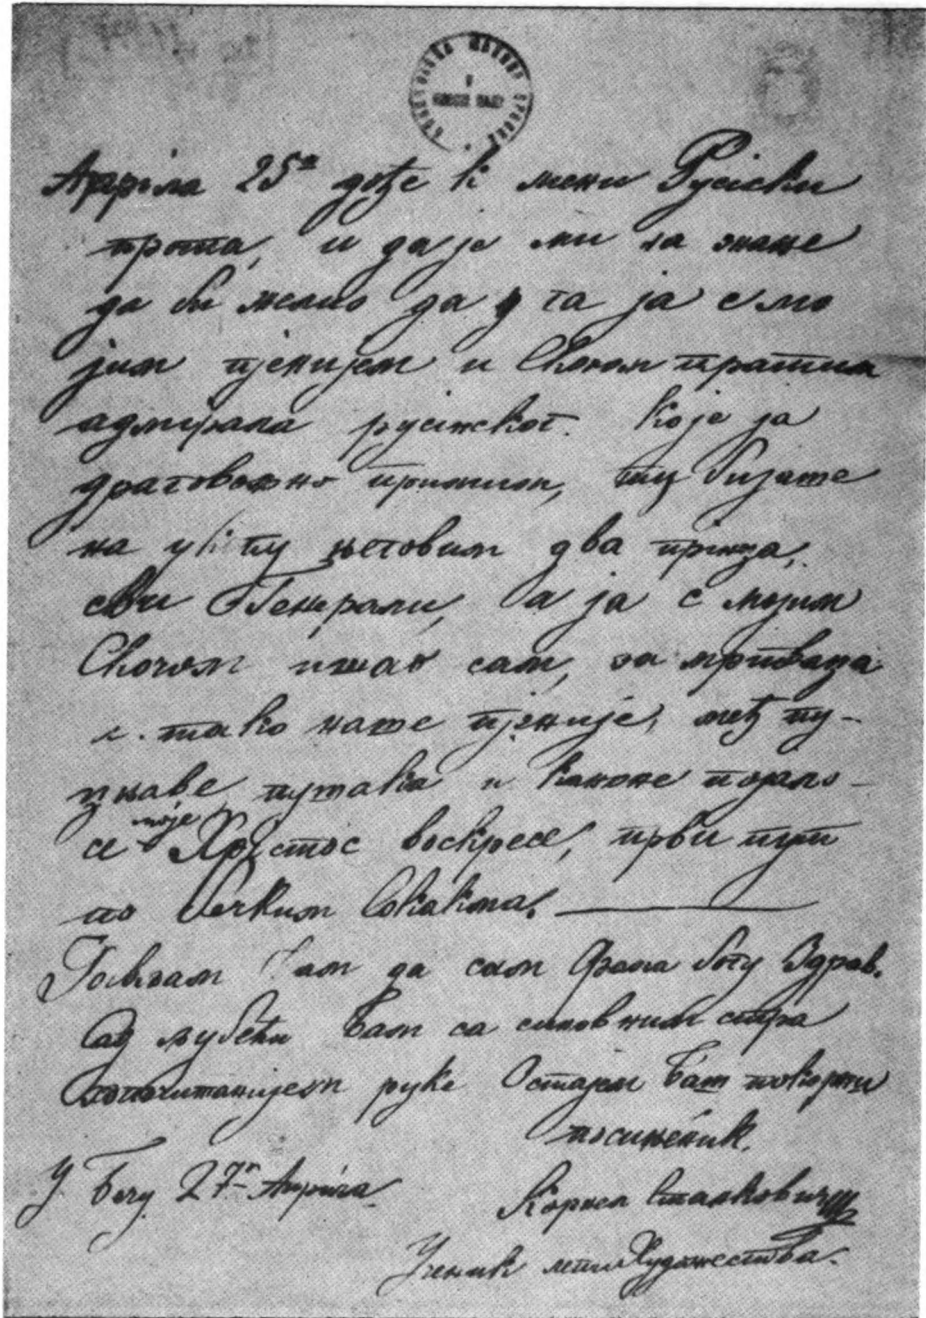 Априла 25га дође к мени Русиски
прота, и даје ми на знање
да би желио да ја с мо
јим пјенијем и Хором пратим
адмирала русинског. које ја
драговољно примим, ту бијаше
на његовим два принца,
сви Генерали, а ја с мојим
Хором ишао сам, за мртваца
и тако наше пјеније, међ пу-
цњаве пушака и каноне појало-
се моје Христос воскресе, први пут
по Бечким Сокакма.
Јављам Вам да сам Фала богу Здрав.
Од љубећи Вам са синовним стра
хопочитанијем руке Остајем Ваш покорни
посињеник.
У Бечу 27г Априла
Корнел Станковић
Ученик Художества.